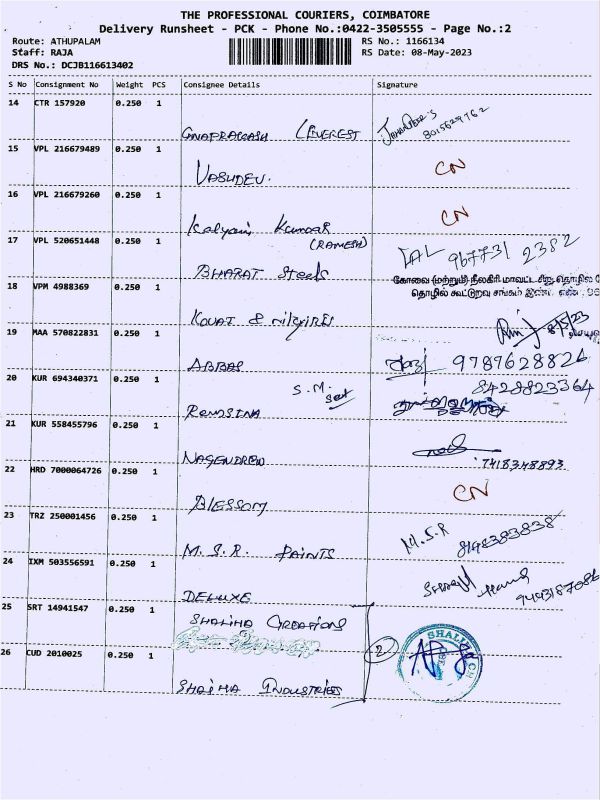 THE PROFESSIONAL COURIERS, COIMBATORE
Delivery Runsheet - PCK - Phone No.:0422-3505555 - Page No.:2
Route: ATHUPALAM RS No.: 1166134
Staff: RAJA RS Date: 08-May-2023
DRS No.: DCJB116613402
S No Consignment No Weight PCS Consignee Details Signature
14 CTR 157920 0.250 1
GNAPRAGASH (EVEREST 8015629762
15 VPL 216679489 0.250 1
VASUDEV. CN
16 VPL 216679260 0.250 1
Kalyani Kumar CN
(RAMESH)
17 VPL 520651448 0.250 1
BHARAT Steels LAL 967731 2382
18 VPM 4988369 0.250 1
கோவை (மற்றும்) நீலகிரி மாவட்ட சிறு தொழில்
தொழில் கூட்டுறவு சங்கம்
KOVAI & NILGIRIS 8/5/23
19 MAA 570822831 0.250 1
ABBAS 9789628826
20 KUR 694340371 0.250 1
S.M. 8428823364
ROWSINA
21 KUR 558455796 0.250 1
NAGENDREN 7418348893
22 HRD 7000064726 0.250 1
BLESSOM CN
23 TRZ 250001456 0.250 1
M.S.R. PAINTS M.S.R 8148383838
24 IXM 503556591 0.250 1
DELUXE 9443187086
25 SRT 14941547 0.250 1
SHALIHA CREATIONS
26 CUD 2010025 0.250 1
2
SHALIHA INDUSTRIES